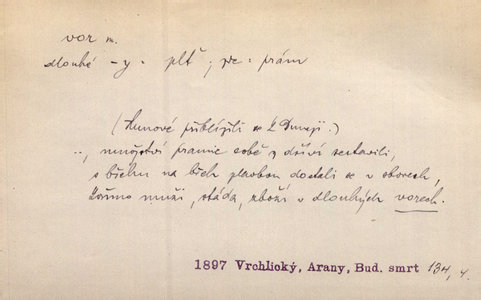 vor m.
dlouhé -y = plť ; pře = prám
(Hunové přiblížili se k Dunaji.)
.., množství pramic sobě z dříví sestavili,
s břehu na břeh plavbou dostali se v oborech,
muži, stáda, zboží v dlouhých vorech.
1897 Vrchlický, Arany, Bud. smrt 134, 4.